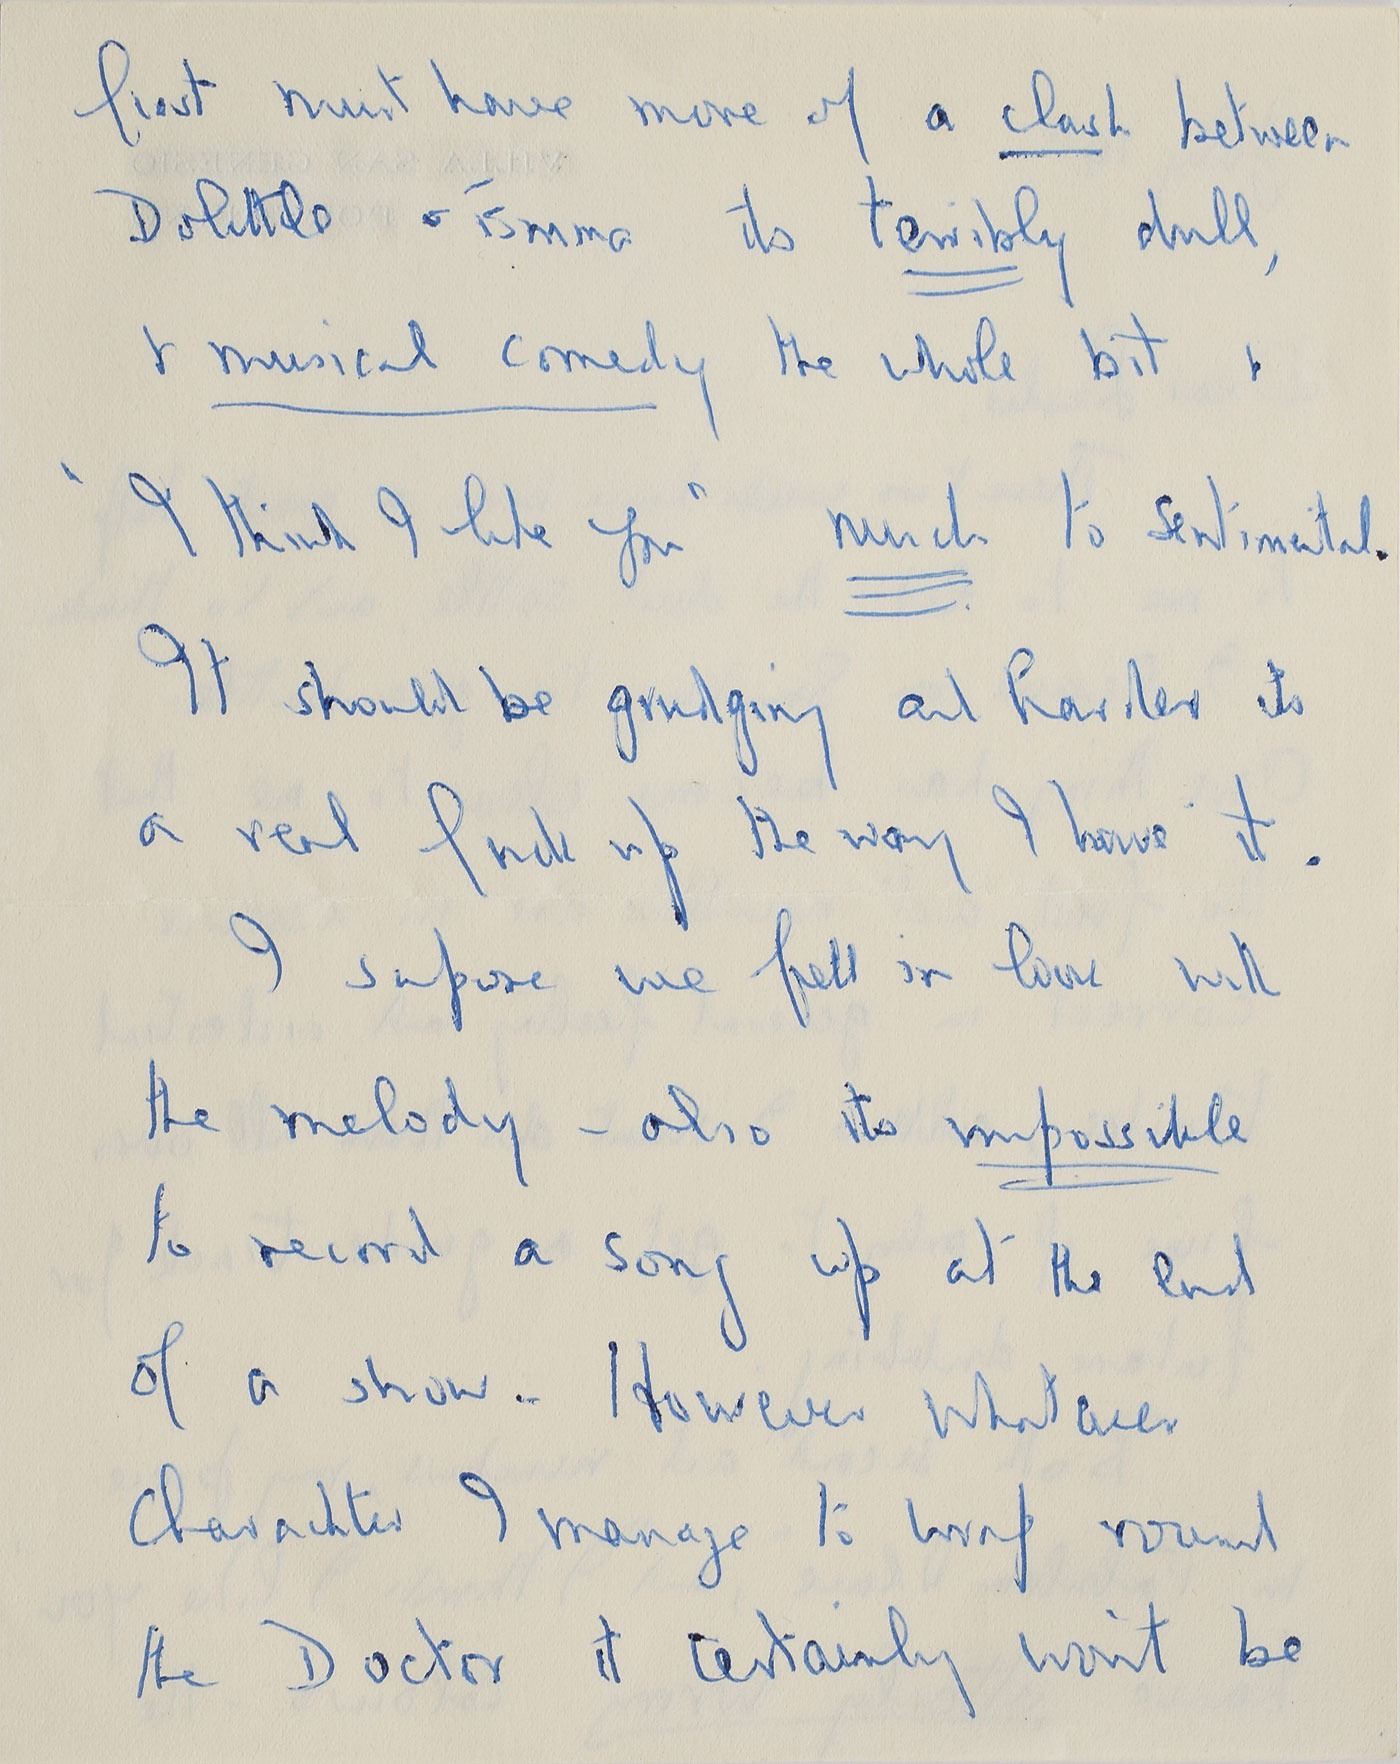 first must have more of a clash between
Dolittle & Emma its terribly dull,
& musical comedy the whole bit &
"I think I like you" much to sentimental.
It should be grudging and harder its
a real fuck up the way I have it.
I supose we fell in love with
the melody - also its impossible
to record a song up at the end
of a show. - However whatever
Charachter I manage to wrap round
the Doctor it certainly won't be